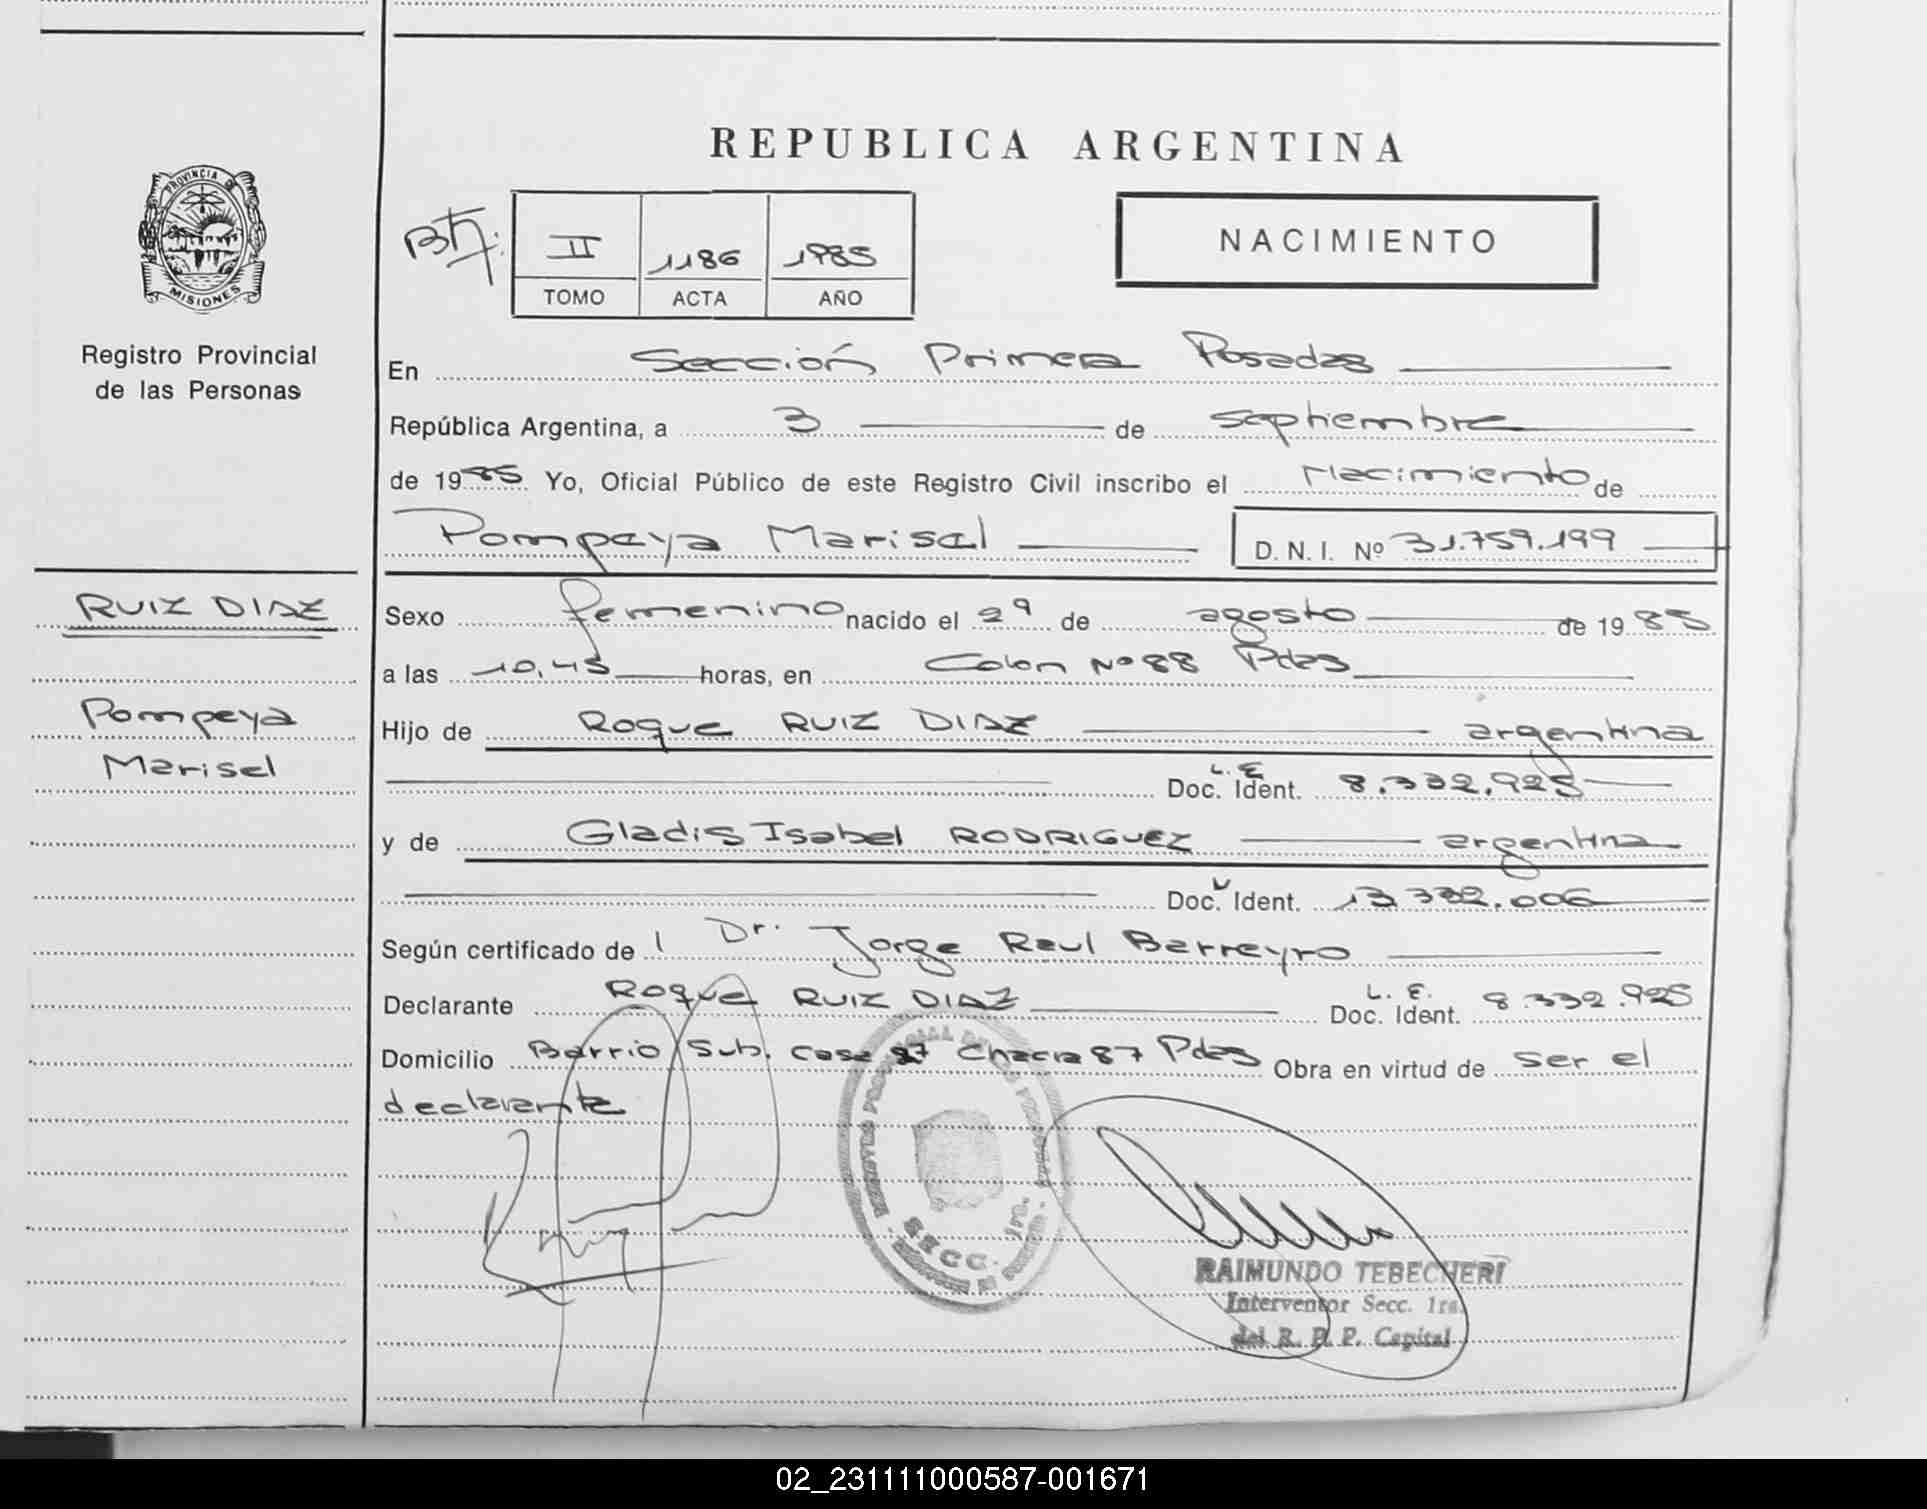 REPUBLICA ARGENTINA
PROVINCIA DE
MISIONES
Registro Provincial
de las Personas
II 1186 1985
TOMO ACTA AÑO
NACIMIENTO
En Sección Primera Posadas
República Argentina, a 3 de septiembre
de 1985 Yo, Oficial Público de este Registro Civil inscribo el Nacimiento de
Pompeya Marisel D. N. I. Nº 31.759.199
RUIZ DIAZ
Pompeya
Marisel
Sexo femenino nacido el 29 de agosto de 1985
a las 10,45 horas, en Colon Nº 88 Pdas
Hijo de Roque RUIZ DIAZ argentina
L. E
Doc. Ident. 8.332.925
y de Gladis Isabel RODRIGUEZ argentina
Doc. Ident. 13.332.006
Según certificado de Dr. Jorge Raul Barreyro
Declarante Roque RUIZ DIAZ L. E. Doc. Ident. 8.332.925
Domicilio Barrio Sub. casa 27 Chacra 87 Pdas Obra en virtud de ser el
declarante
SECC. 1ra.
RAIMUNDO TEBECHERI
Interventor Secc. 1ra.
del R. P. P. Capital
02_231111000587-001671